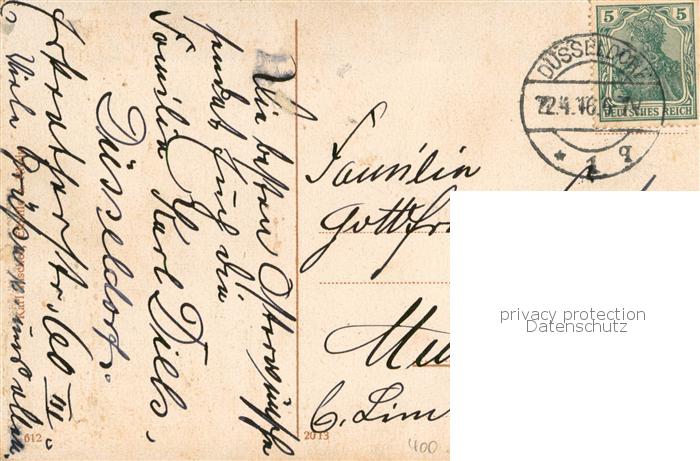 Die besten Osterwünsche
sendet Euch die
Familie Karl Diels,
Düsseldorf.
Erkratherstr. 60 III.
Viele Grüße
Familie
Gottfr
b. Lim
5 5
DEUTSCHES REICH
DÜSSELDORF
22.4.16. 6-7
* 1 q
612
2013
400
privacy protection
Datenschutz